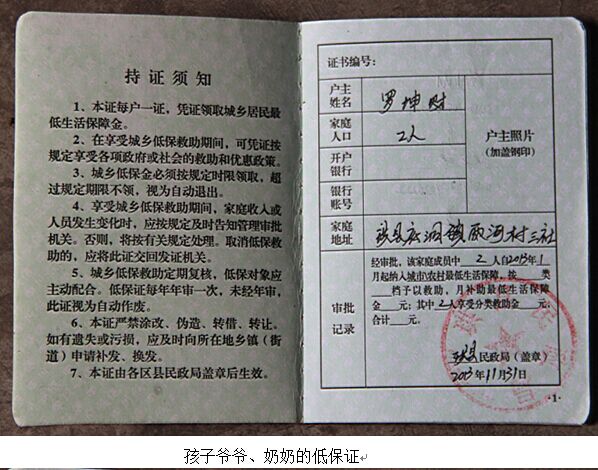 持证须知
1、本证每户一证，凭证领取城乡居民最
低生活保障金。
2、在享受城乡低保救助期间，可凭证按
规定享受各项政府或社会的救助和优惠政策。
3、城乡低保金必须按规定时限领取，超
过规定期限不领，视为自动退出。
4、享受城乡低保救助期间，家庭收入或
人员发生变化时，应按规定及时告知管理审批
机关。否则，将按有关规定处理。取消低保救
助的，应将此证交回发证机关。
5、城乡低保救助定期复核，低保对象应
主动配合。低保证每年年审一次，未经年审，
此证视为自动作废。
6、本证严禁涂改、伪造、转借、转让。
如有遗失或污损，应及时向所在地乡镇（街
道）申请补发、换发。
7、本证由各区县民政局盖章后生效。
证书编号：
户主
姓名
罗坤财
家庭
人口
2人
开户
银行
银行
账号
户主照片
（加盖钢印）
家庭
地址
镇 河村三社
审批
记录
经审批，该家庭成员中 2 人自2013年1
月起纳入城市/农村最低生活保障，按 类
档子以救助，月补助最低生活保障
金 元；其中2人享受分类救助金 元；
合计 元。
县民政局（盖章）
2013年11月31日
·1·
孩子爷爷、奶奶的低保证